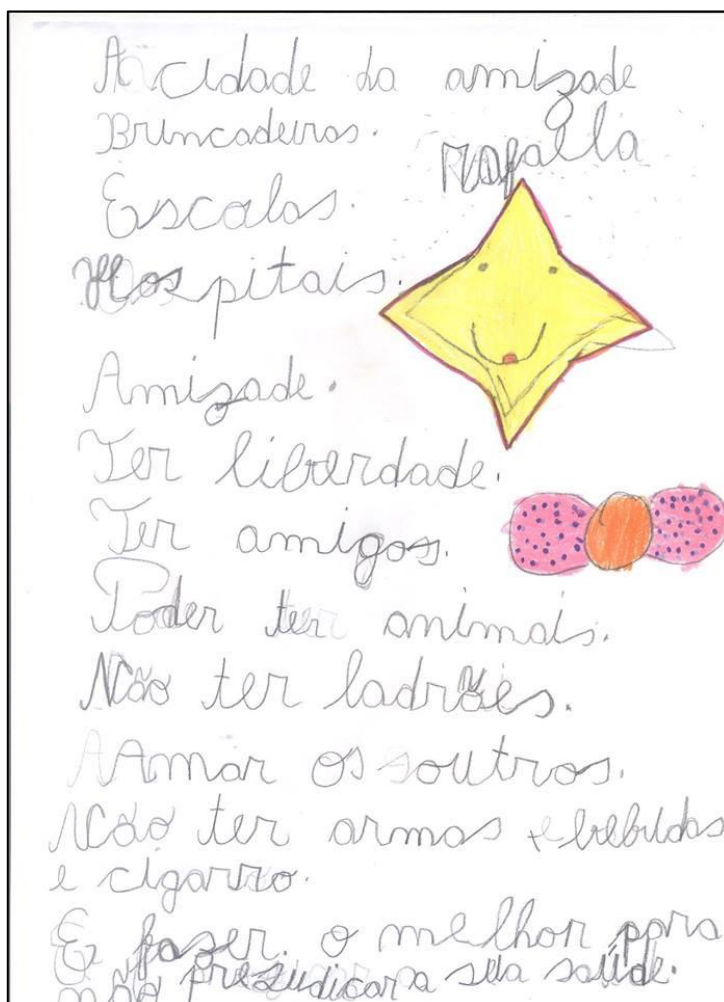 A cidade da amizade
Brincadeiras.
Rafaella
Escolas.
Hospitais.
Amizade.
Ter liberdade.
Ter amigos.
Poder ter animais.
Não ter ladrões.
Amar os soutros.
Não ter armas e bebidas
e cigarro.
E fazer o melhor para
não prezudicar a sua saúde.